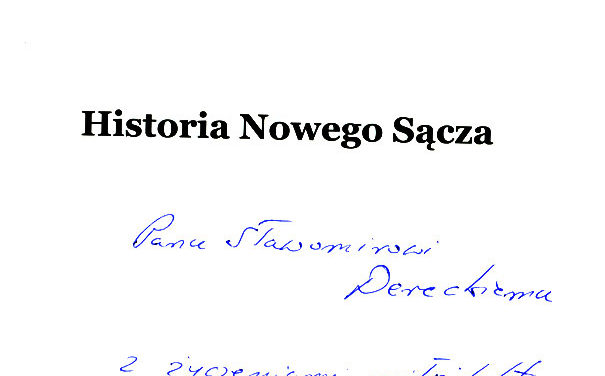 Historia Nowego Sącza
Panu Sławomirowi
Dereckiemu
z życzeniami